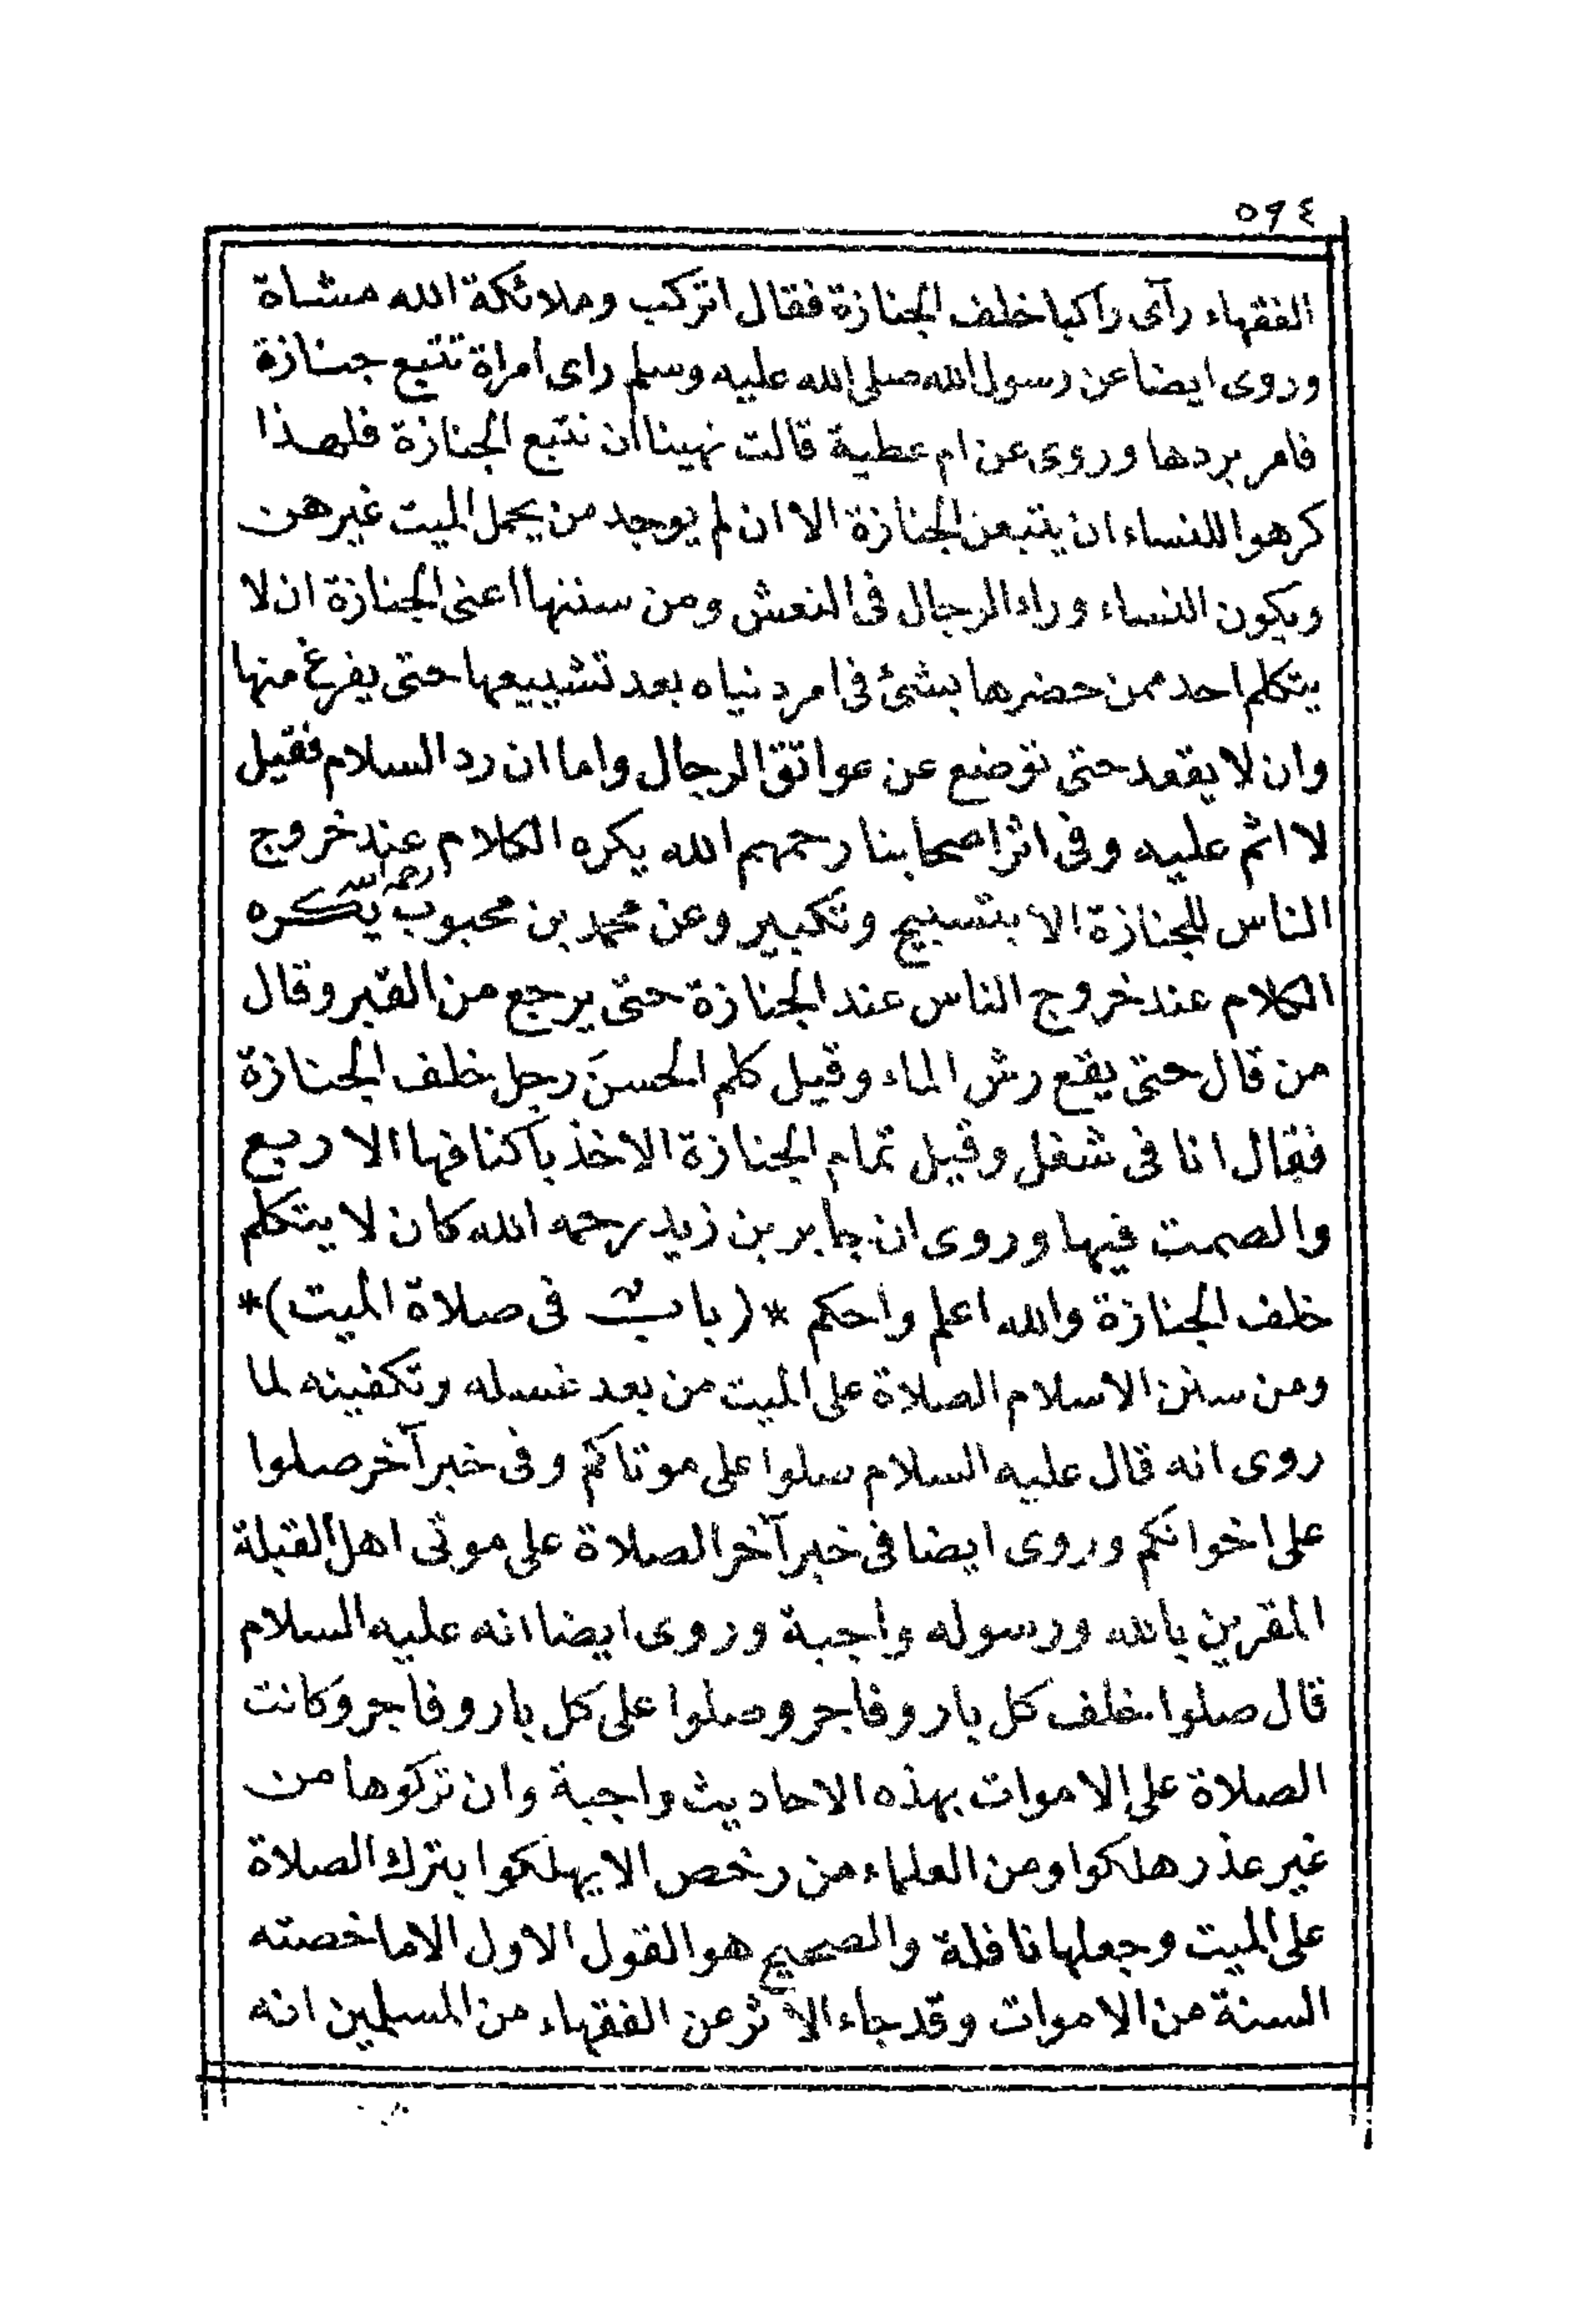 ٥٩٤
الفقهاء رآى راكبا خلف الجنازة فقال اتركب وملائكة الله مشاة
وروى ايضا عن رسول الله صلى الله عليه وسلم راى امراة تتبع جنازة
فامر بردها وروى عن ام عطية قالت نهينا ان نتبع الجنازة فلهذا
كرهوا للنساء ان يتبعن الجنازة الا ان لم يوجد من يحمل الميت غيرهن
ويكون النساء وراء الرجال فى النعش ومن سننها اعنى الجنازة ان لا
يتكلم احد ممن حضرها بشئ فى امر دنياه بعد تشييعها حتى يفرغ منها
وان لا يقعد حتى توضع عن عواتق الرجال واما ان رد السلام فقيل
لا اثم عليه وفى اثر اصحابنا رحمهم الله يكره الكلام عند خروج
الناس للجنازة الا بتسبيح وتكبير وعن محمد بن محبوب رحمه الله يكره
الكلام عند خروج الناس عند الجنازة حتى يرجع من القبر وقال
من قال حتى يقع رش الماء وقيل كلم الحسنَ رجل خلف الجنازة
فقال انا فى شغل وقيل تمام الجنازة الاخذ باكنافها الاربع
والصمت فيها وروى ان جابر بن زيد رحمه الله كان لا يتكلم
خلف الجنازة والله اعلم واحكم *(باب فى صلاة الميت)*
ومن سنن الاسلام الصلاة على الميت من بعد غسله وتكفينه لما
روى انه قال عليه السلام صلوا على موتاكم وفى خبر آخر صلوا
على اخوانكم وروى ايضا فى خبر آخر الصلاة على موتى اهل القبلة
المقرين بالله ورسوله واجبة وروى ايضا انه عليه السلام
قال صلوا خلف كل بار وفاجر وصلوا على كل بار وفاجر وكانت
الصلاة على الاموات بهذه الاحاديث واجبة وان تركوها من
غير عذر هلكوا ومن العلماء من رخص الا يهلكوا بترك الصلاة
على الميت وجعلها نافلة والصحيح هو القول الاول الا ما خصته
السنة من الاموات وقد جاء الاثر عن الفقهاء من المسلمين انه